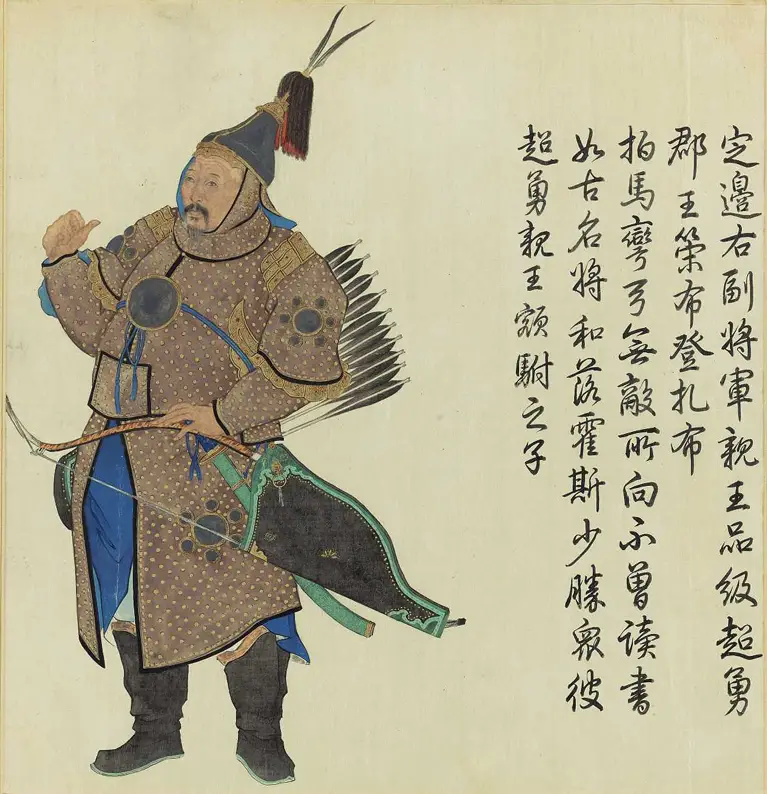 定邊右副將軍親王品級超勇
郡王策布登扎布
拍馬彎弓無敵所向不曾讀書
如古名將和落霍斯少勝衆彼
超勇親王額駙之子